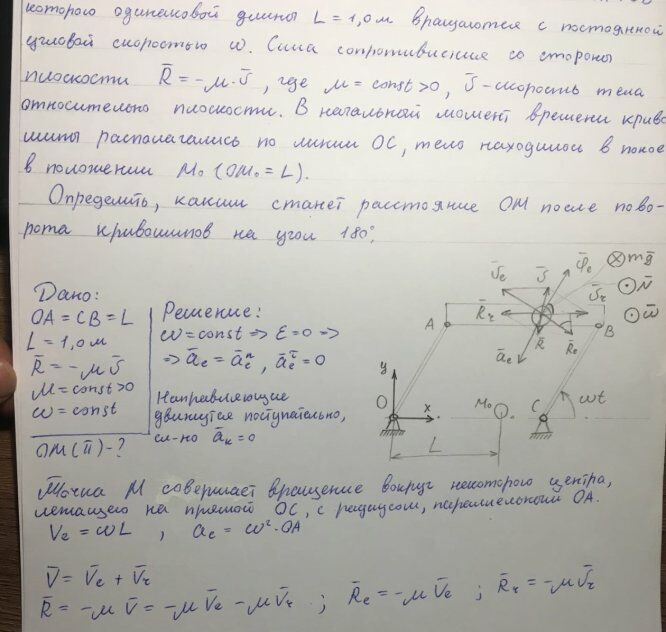 которого одинаковой длины L = 1,0 м вращаются с постоянной
угловой скоростью ω. Сила сопротивления со стороны
плоскости R̄ = -μ·v̄, где μ = const > 0, v̄ - скорость тела
относительно плоскости. В начальный момент времени криво
шипы располагались по линии ОС, тело находилось в покое
в положении M₀ (OM₀ = L).
Определить, каким станет расстояние ОМ после пово-
рота кривошипов на угол 180°.
Дано:
OA = CB = L
L = 1,0 м
R̄ = -μ v̄
μ = const > 0
ω = const
OM(π) - ?
Решение:
ω = const => ε = 0 =>
=> āe = āeⁿ, āeᵗ = 0
Направляющие
движутся поступательно,
сл-но āk = 0
v̄e
v̄
Φ̄e
mḡ
N̄
ω̄
v̄r
R̄r
A
B
R̄
R̄e
āe
y
O
x
M₀
C
ωt
L
Точка М совершает вращение вокруг некоторого центра,
лежащего на прямой ОС, с радиусом, параллельным ОА.
Ve = ωL , ae = ω²·OA
V̄ = V̄e + V̄r
R̄ = -μ V̄ = -μ V̄e - μ V̄r ; R̄e = -μ V̄e ; R̄r = -μ V̄r